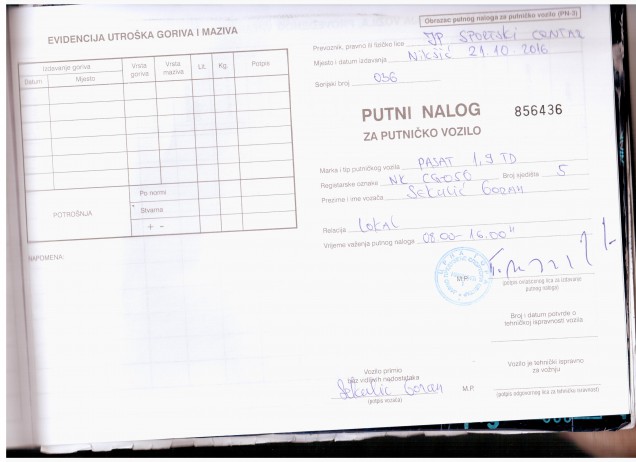 Obrazac putnog naloga za putničko vozilo (PN-3)
EVIDENCIJA UTROŠKA GORIVA I MAZIVA
Izdavanje goriva
Datum
Mjesto
Vrsta goriva
Vrsta maziva
Lit.
Kg.
Potpis
POTROŠNJA
Po normi
Stvarna
+ -
NAPOMENA:
Prevoznik, pravno ili fizičko lice JP SPORTSKI CENTAR
Mjesto i datum izdavanja Nikšić 21 10. 2016
Serijski broj 036
PUTNI NALOG
856436
ZA PUTNIČKO VOZILO
Marka i tip putničkog vozila PASAT 1,9 TD
Registarske oznake NK CG050 Broj sjedišta 5
Prezime i ime vozača Sekulić Goran
Relacija LOKAL
Vrijeme važenja putnog naloga 08.00-16.00 h
M.P.
(potpis ovlašćenog lica za izdavanje
putnog naloga)
Broj i datum potvrde o
tehničkoj ispravnosti vozila
Vozilo primio
bez vidljivih nedostataka
Sekulić Goran
(potpis vozača)
M.P.
Vozilo je tehnički ispravno
za vožnju
(potpis odgovornog lica za tehničku ispravnost)